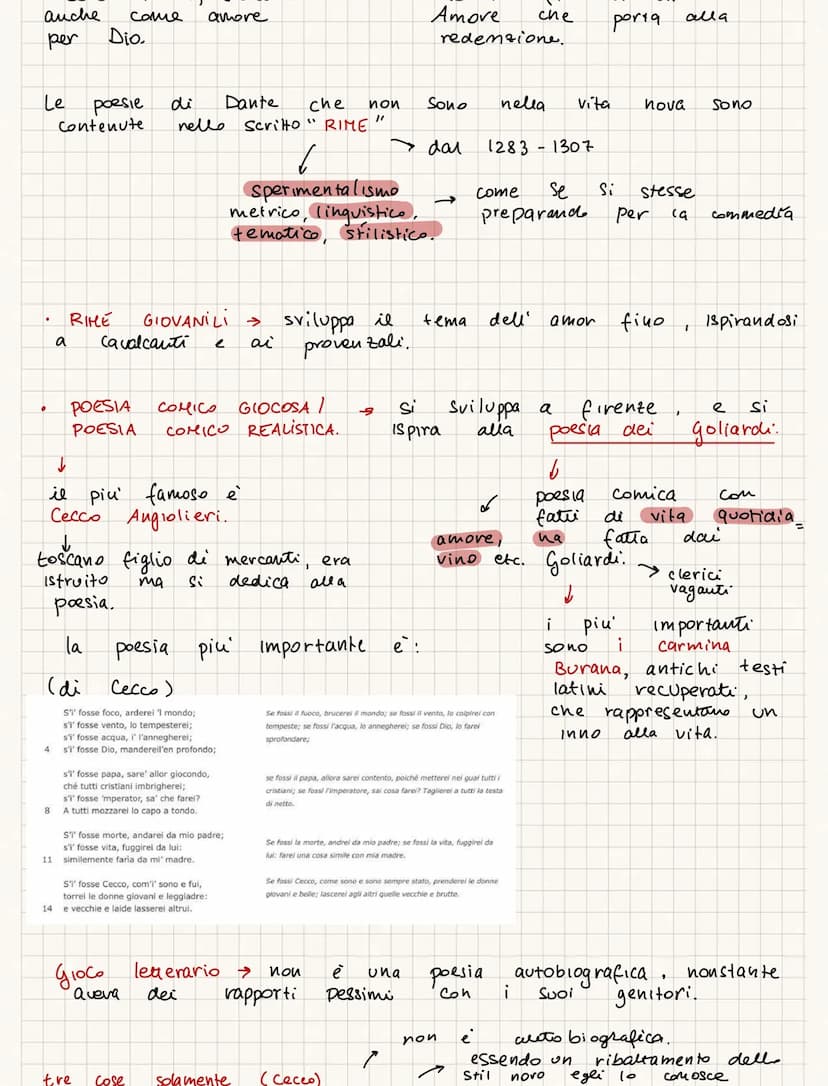 anche come amore
per Dio.
Amore che porta alla
redenzione.
Le poesie di Dante che non sono nella vita nova sono
contenute nello scritto "RIME"
→ dal 1283 - 1307
sperimentalismo
metrico, linguistico,
tematico, stilistico.
→ come se si stesse
preparando per la commedia
· RIME GIOVANILI → sviluppa il tema dell' amor fino, ispirandosi
a Cavalcanti e ai provenzali.
• POESIA COMICO GIOCOSA / → si sviluppa a firenze, e si
POESIA COMICO REALISTICA. ispira alla poesia dei Goliardi.
↓
il piu' famoso è
Cecco Angiolieri.
↓
toscano figlio di mercanti, era
istruito ma si dedica alla
poesia.
la poesia piu' importante è:
(di Cecco)
poesia comica con
fatti di vita quotidia=
na fatta dai
Goliardi.
amore,
vino etc.
→ clerici
vaganti
↓
i piu' importanti
sono i carmina
Burana, antichi testi
latini recuperati,
che rappresentano un
inno alla vita.
S'i' fosse foco, arderei 'l mondo;
s'i' fosse vento, lo tempesterei;
s'i' fosse acqua, i' l'annegherei;
4 s'i' fosse Dio, mandereil'en profondo;
s'i' fosse papa, sare' allor giocondo,
ché tutti cristiani imbrigherei;
s'i' fosse 'mperator, sa' che farei?
8 A tutti mozzarei lo capo a tondo.
S'i' fosse morte, andarei da mio padre;
s'i' fosse vita, fuggirei da lui:
11 similemente faria da mi' madre.
S'i' fosse Cecco, com'i' sono e fui,
torrei le donne giovani e leggiadre:
14 e vecchie e laide lasserei altrui.
Se fossi il fuoco, brucerei il mondo; se fossi il vento, lo colpirei con
tempeste; se fossi l'acqua, lo annegherei; se fossi Dio, lo farei
sprofondare;
se fossi il papa, allora sarei contento, poiché metterei nei guai tutti i
cristiani; se fossi l'imperatore, sai cosa farei? Taglierei a tutti la testa
di netto.
Se fossi la morte, andrei da mio padre; se fossi la vita, fuggirei da
lui: farei una cosa simile con mia madre.
Se fossi Cecco, come sono e sono sempre stato, prenderei le donne
giovani e belle; lascerei agli altri quelle vecchie e brutte.
Gioco letterario → non è una poesia autobiografica, nonstante
aveva dei rapporti pessimi con i suoi genitori.
non e' autobiografica.
essendo un ribaltamento dello
stil novo egli lo conosce
tre cose solamente (Cecco)